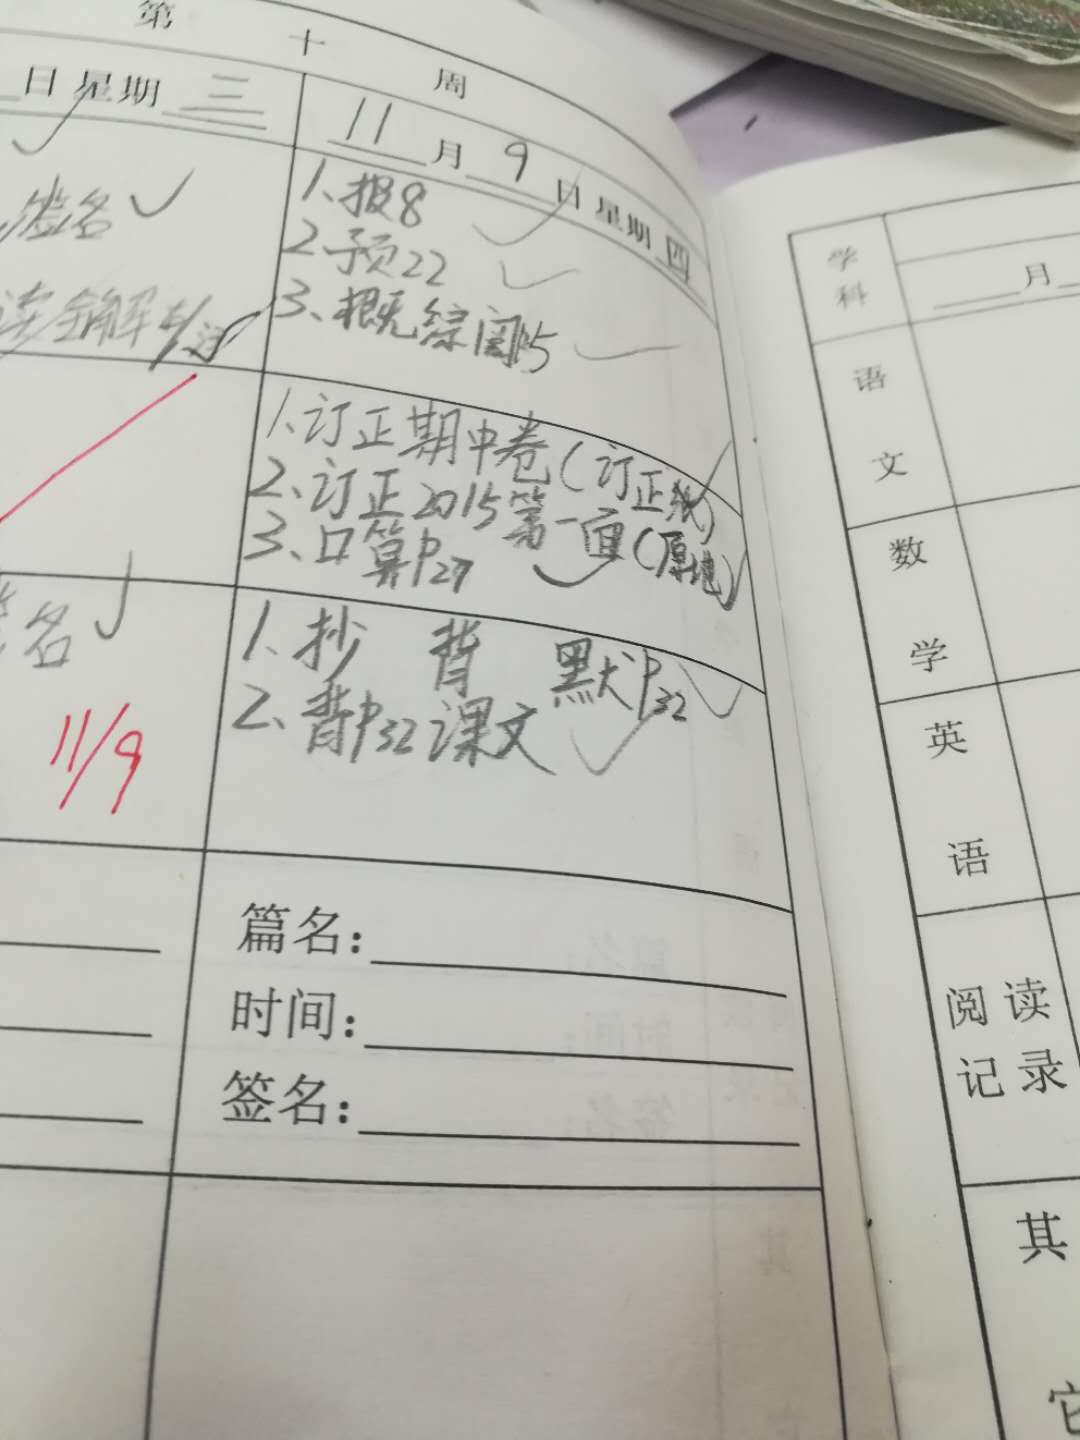 第 十 周
日 星期 三
11 月 9 日 星期 四
签名
1、报8
2、预22
3、概况综阅P15
1、订正期中卷(订正纸)
2、订正2015第一面(原地)
3、口算P27
名
11/9
1、抄 背 默P32
2、背P32课文
篇名:
时间:
签名:
学科
月
语文
数学
英语
阅读
记录
其它